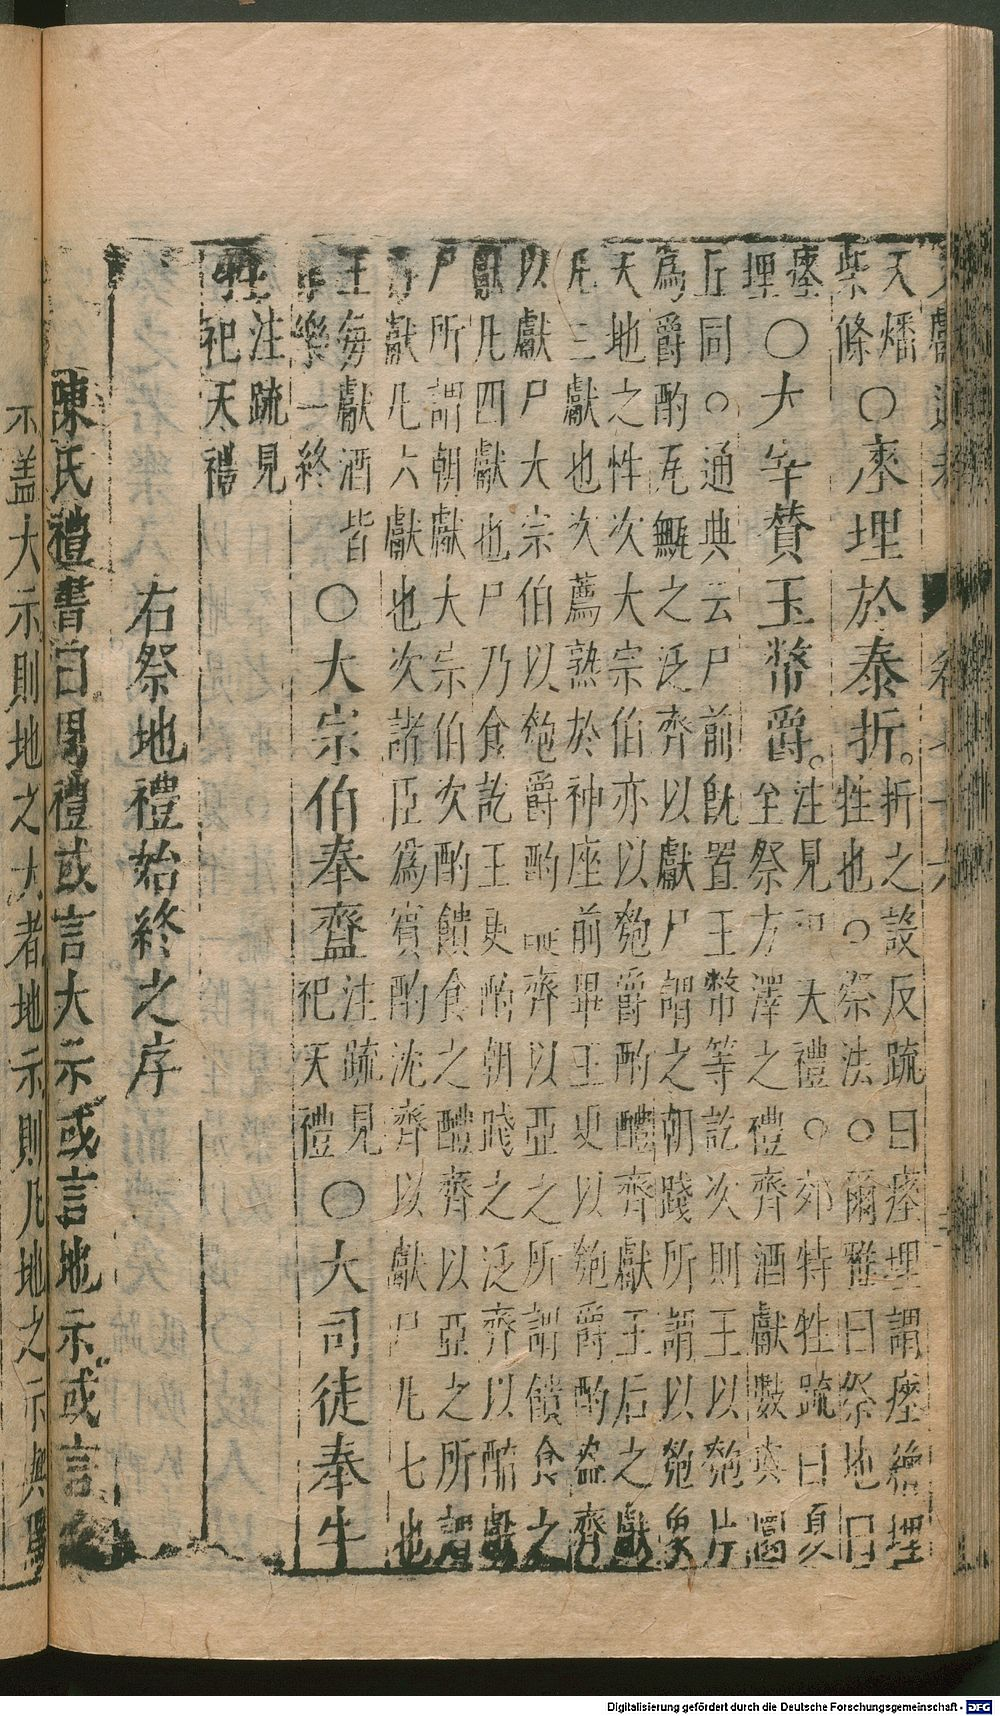 天燔
柴條
○瘞埋於泰折。
折之設反疏曰瘞埋謂瘞繒埋
牲也○祭法○爾雅曰祭地曰
瘞
埋
○大宰贊玉幣爵。
注見祀天禮○郊特牲疏曰夏
至祭方澤之禮齊酒獻數與圜
丘同○通典云尸前既置玉幣等訖次則王以匏片
為爵酌瓦甒之泛齊以獻尸謂之朝踐所謂以匏象
天地之性次大宗伯亦以匏爵酌醴齊獻王后之獻
凡三獻也次薦熟於神座前畢王更以匏爵酌盎齊
以獻尸大宗伯以匏爵酌醍齊以亞之所謂饋食之
獻凡四獻也尸乃食訖王更酌朝踐之泛齊以酳獻
尸所謂朝獻大宗伯次酌饋食之醴齊以亞之所謂
獻凡六獻也次諸臣爲賓酌沈齊以獻尸凡七也
王每獻酒皆
作樂一終
○大宗伯奉齍
注疏見
祀天禮
○大司徒奉牛
牲
注疏見
祀天禮
右祭地禮始終之序
陳氏禮書曰周禮或言大示或言地示或言
示蓋大示則地之大者地示則凡地之示與焉
Digitalisierung gefördert durch die Deutsche Forschungsgemeinschaft - DFG